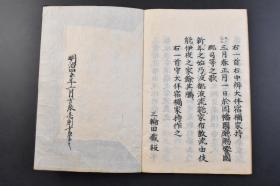 右一首右中辨大伴宿祢家持
三年春正月一日於因幡國廳賜饗國
郡司等之歌
新年乃始乃波都波流能家布敷流由伎
能伊夜之家餘其騰
右一首守大伴宿祢家持作之
三輪田
明治四年二月